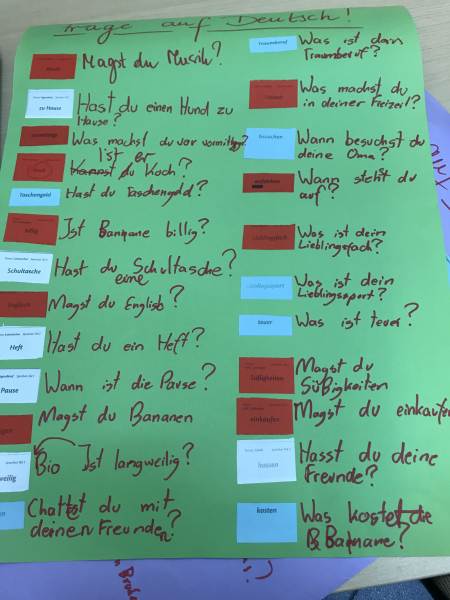 Frage auf Deutsch!
Magst du Musik?
zu Hause
Hast du einen Hund zu
Hause?
Was machst du vor vormittag?
Ist er
Kannst du Koch?
Taschengeld
Hast du Taschengeld?
billig
Ist Banane billig?
Schultasche
Hast du Schultasche?
eine
Englisch
Magst du English?
Heft
Hast du ein Heft?
Pause
Wann ist die Pause?
Magst du Bananen
weilig
Bio Ist langweilig?
Chattest du mit
deinen Freunden?
Traumberuf
Was ist dan
Traumberuf?
Was machst du
in deiner Freizeit?
besuchen
Wann besuchst du
deine Oma?
Wann stehst du
auf?
Lieblingsfach
Was ist dein
Lieblingsfach?
Lieblingssport
Was ist dein
Lieblingssport?
teuer
Was ist teuer?
Süßigkeiten
Magst du
Süßigkeiten
einkaufen
Magst du einkaufen
hassen
Hasst du deine
Freunde?
kosten
Was kostet die
Banane?